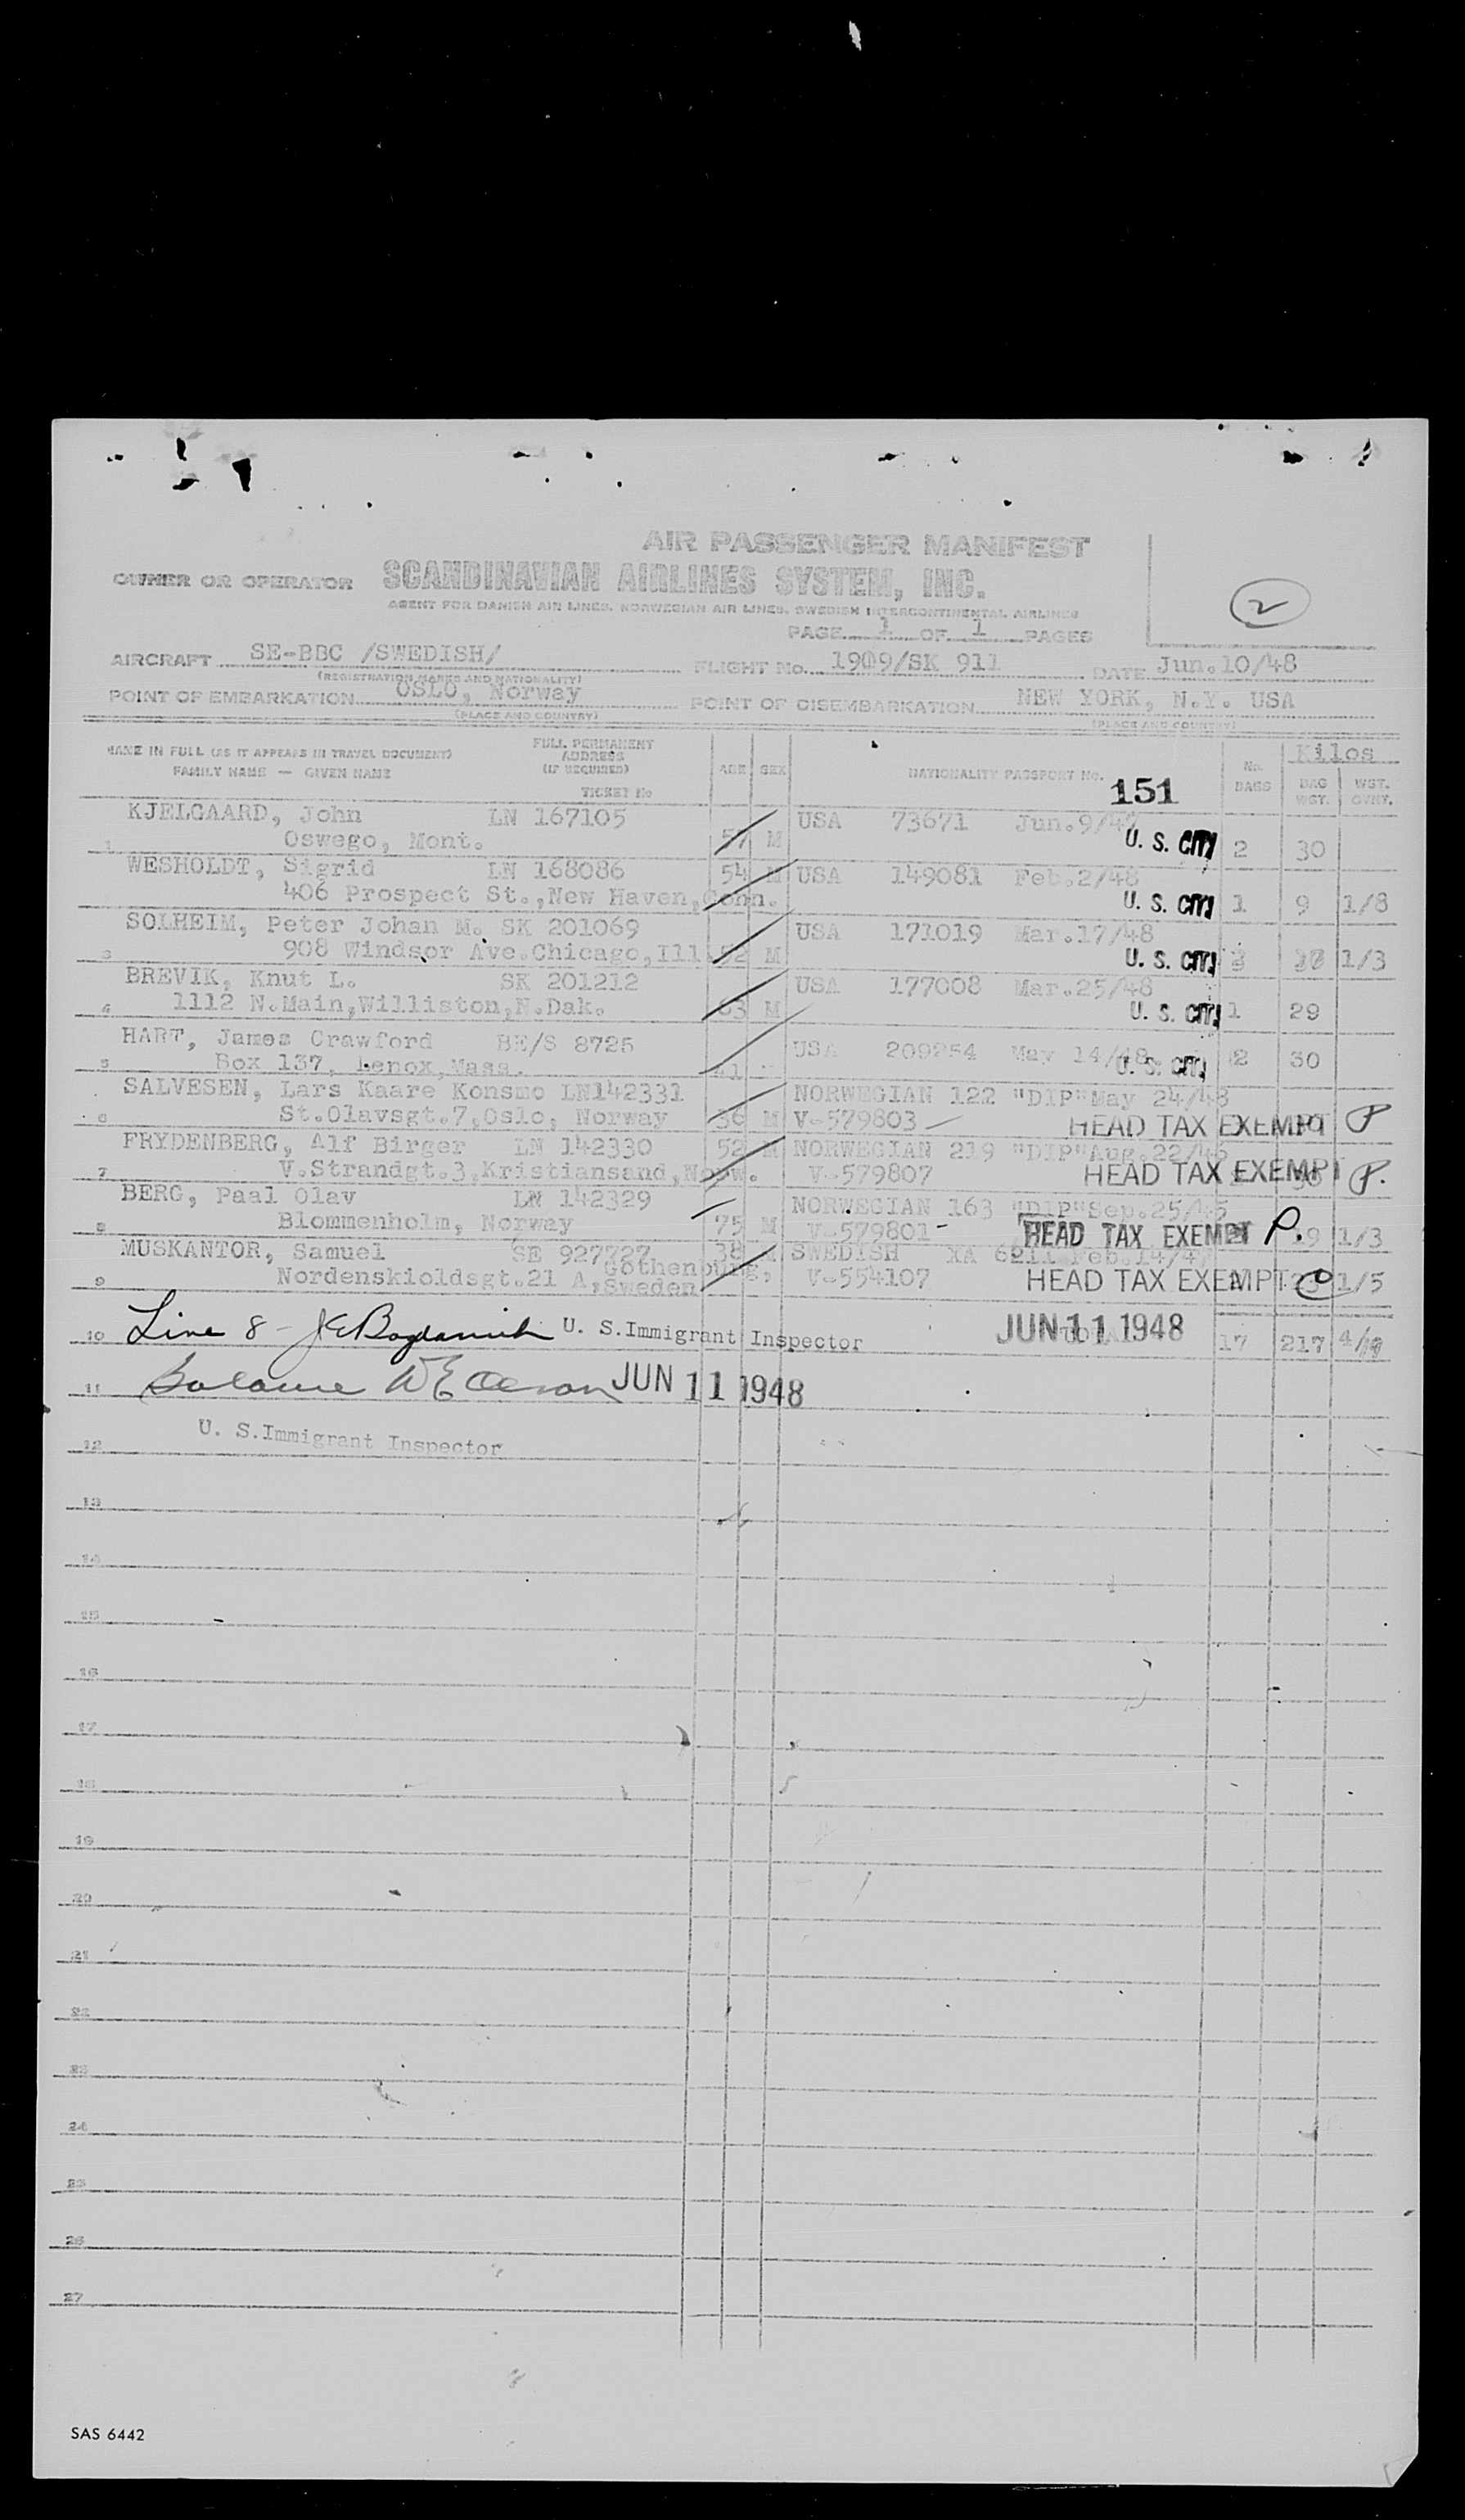 AIR PASSENGER MANIFEST
OWNER OR OPERATOR SCANDINAVIAN AIRLINES SYSTEM, INC.
AGENT FOR DANISH AIR LINES, NORWEGIAN AIR LINES, SWEDISH INTERCONTINENTAL AIRLINES
2
PAGE 1 OF 1 PAGES
AIRCRAFT SE-BBC /SWEDISH/ FLIGHT No. 1909/SK 911 DATE Jun.10/48
(REGISTRATION MARKS AND NATIONALITY)
POINT OF EMBARKATION OSLO, Norway POINT OF DISEMBARKATION NEW YORK, N.Y. USA
(PLACE AND COUNTRY) (PLACE AND COUNTRY)
NAME IN FULL (AS IT APPEARS IN TRAVEL DOCUMENT) FULL PERMANENT ADDRESS (IF REQUIRED) AGE SEX NATIONALITY PASSPORT No. No. BAGS Kilos
FAMILY NAME — GIVEN NAME TICKET No 151 BAG WGT. WGT. OVHT.
KJELGAARD, John LN 167105 USA 73671 Jun.9/47
1 Oswego, Mont. 57 M U. S. CIT. 2 30
WESHOLDT, Sigrid LN 168086 54 M USA 149081 Feb.2/48
406 Prospect St.,New Haven,Conn. U. S. CIT. 1 9 1/8
SOLHEIM, Peter Johan M. SK 201069 USA 171019 Mar.17/48
3 908 Windsor Ave.Chicago,Ill. 52 M U. S. CIT. 1/3
BREVIK, Knut L. SK 201212 USA 177008 Mar.25/48
4 1112 N.Main,Williston,N.Dak. 63 M U. S. CIT. 1 29
HART, James Crawford BE/S 8725 USA 209254 May 14/48
5 Box 137, Lenox,Mass. 41 U. S. CIT. 2 30
SALVESEN, Lars Kaare Konsmo LN142331 NORWEGIAN 122 "DIP"May 24/48
6 St.Olavsgt.7,Oslo, Norway 36 M V-579803 HEAD TAX EXEMPT P
FRYDENBERG, Alf Birger LN 142330 52 M NORWEGIAN 219 "DIP"Aug.22/46
7 V.Strandgt.3,Kristiansand,Norw. V-579807 HEAD TAX EXEMPT P.
BERG, Paal Olav LN 142329 NORWEGIAN 163 "DIP"Sep.25/45
8 Blommenholm, Norway 75 M V-579801 HEAD TAX EXEMPT P. 1/3
MUSKANTOR, Samuel SE 927727 38 M SWEDISH XA 6211 Feb.14/47
9 Nordenskioldsgt.21 A,Gothenburg, Sweden V-554107 HEAD TAX EXEMPT 1/5
10 Line 8 - U. S.Immigrant Inspector JUN 11 1948 17 217
11 Balance JUN 11 1948
12 U. S.Immigrant Inspector
13
14
15
16
17
18
19
20
21
22
23
24
25
26
27
SAS 6442